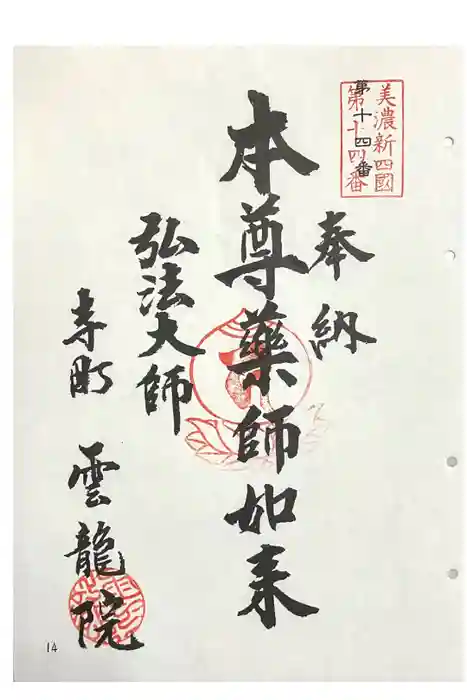 美濃新四國
第十四番
第十四番
奉納
本尊薬師如来
弘法大師
寺町 雲龍院
14